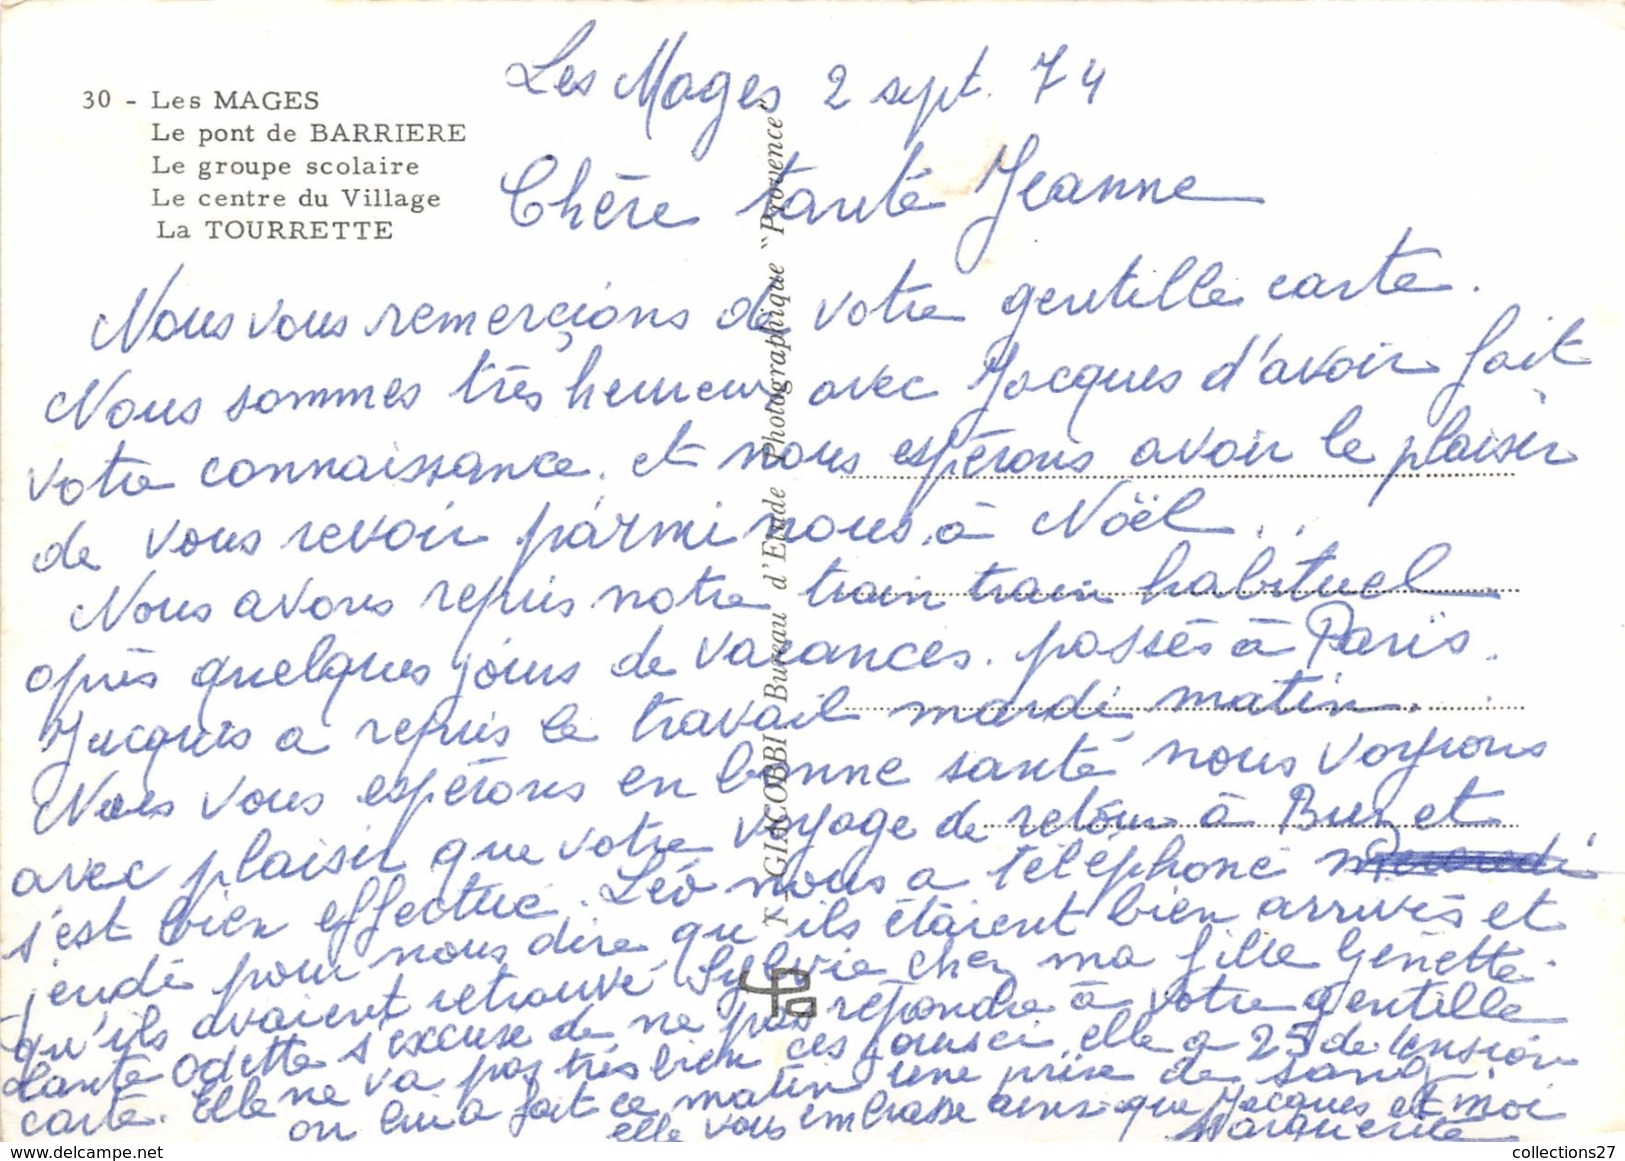 30 - Les MAGES
Le pont de BARRIERE
Le groupe scolaire
Le centre du Village
La TOURRETTE
Les Mages 2 sept. 74
Chère tante Jeanne
Nous vous remerçions de votre gentille carte.
Nous sommes très heureux avec Jacques d'avoir fait
votre connaissance. et nous espérons avoir le plaisir
de vous revoir parmi nous à Noël..
Nous avons repris notre train train habituel
après quelques jours de vacances. passés à Paris.
Jacques a repris le travail mardi matin.
Nous vous espérons en bonne santé nous voyons
avec plaisir que votre voyage de retour à Buzet
s'est bien effectué. Léo nous a téléphoné
jeudi pour nous dire qu'ils étaient bien arrivés et
qu'ils avaient retrouvé Sylvie chez ma fille Génette.
tante Odette s'excuse de ne pas répondre à votre gentille
carte. Elle ne va pas très bien ces jours ci elle a 25 de tension
on lui a fait ce matin une prise de sang.
elle vous embrasse ainsi que Jacques et moi
Marguerite
T. GIACOBBI Bureau d'Etude Photographique "Provence"
collections27